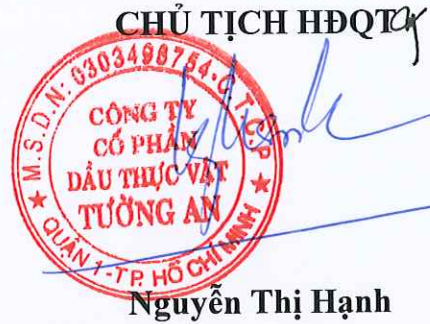 CHỦ TỊCH HĐQT
M.S.D.N: 0303498754-C.T.C.P
CÔNG TY
CỔ PHẦN
DẦU THỰC VẬT
TƯỜNG AN
QUẬN 1-T.P. HỒ CHÍ MINH
Nguyễn Thị Hạnh